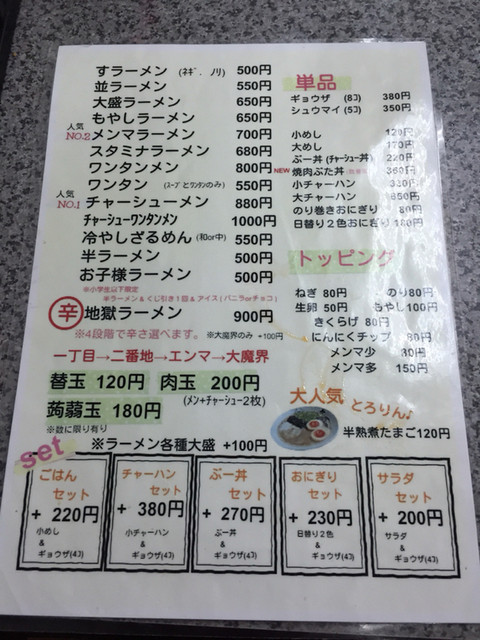 すラーメン (ネギ．ノリ) 500円
並ラーメン 550円
大盛ラーメン 650円
もやしラーメン 650円
人気
NO.2 メンマラーメン 700円
スタミナラーメン 680円
ワンタンメン 800円
ワンタン (スープとワンタンのみ) 550円
人気
NO.1 チャーシューメン 880円
チャーシューワンタンメン 1000円
冷やしざるめん (和or中) 550円
半ラーメン 500円
お子様ラーメン 500円
※小学生以下限定
※ラーメン&くじ引き1回&アイス(バニラorチョコ)
辛 地獄ラーメン 900円
※4段階で辛さ選べます。 ※大魔界のみ +100円
一丁目→二番地→エンマ→大魔界
替玉 120円 肉玉 200円
(メン+チャーシュー2枚)
蒟蒻玉 180円
※数に限り有り
※ラーメン各種大盛 +100円
単品
ギョウザ (8コ) 380円
シュウマイ(5コ) 350円
小めし 120円
大めし 170円
ぶー丼 (チャーシュー丼) 220円
NEW 焼肉ぶた丼 360円
小チャーハン 330円
大チャーハン 650円
のり巻きおにぎり 80円
日替り2色おにぎり 180円
トッピング
ねぎ 80円 のり80円
生卵 50円 もやし100円
きくらげ 80円
にんにくチップ 80円
メンマ少 80円
メンマ多 150円
大人気 とろりん♪
半熟煮たまご120円
set
ごはん
セット
+ 220円
小めし
&
ギョウザ(4コ)
チャーハン
セット
+ 380円
小チャーハン
&
ギョウザ(4コ)
ぶー丼
セット
+ 270円
ぶー丼
&
ギョウザ(4コ)
おにぎり
セット
+ 230円
日替り2色
&
ギョウザ(4コ)
サラダ
セット
+ 200円
サラダ
&
ギョウザ(4コ)